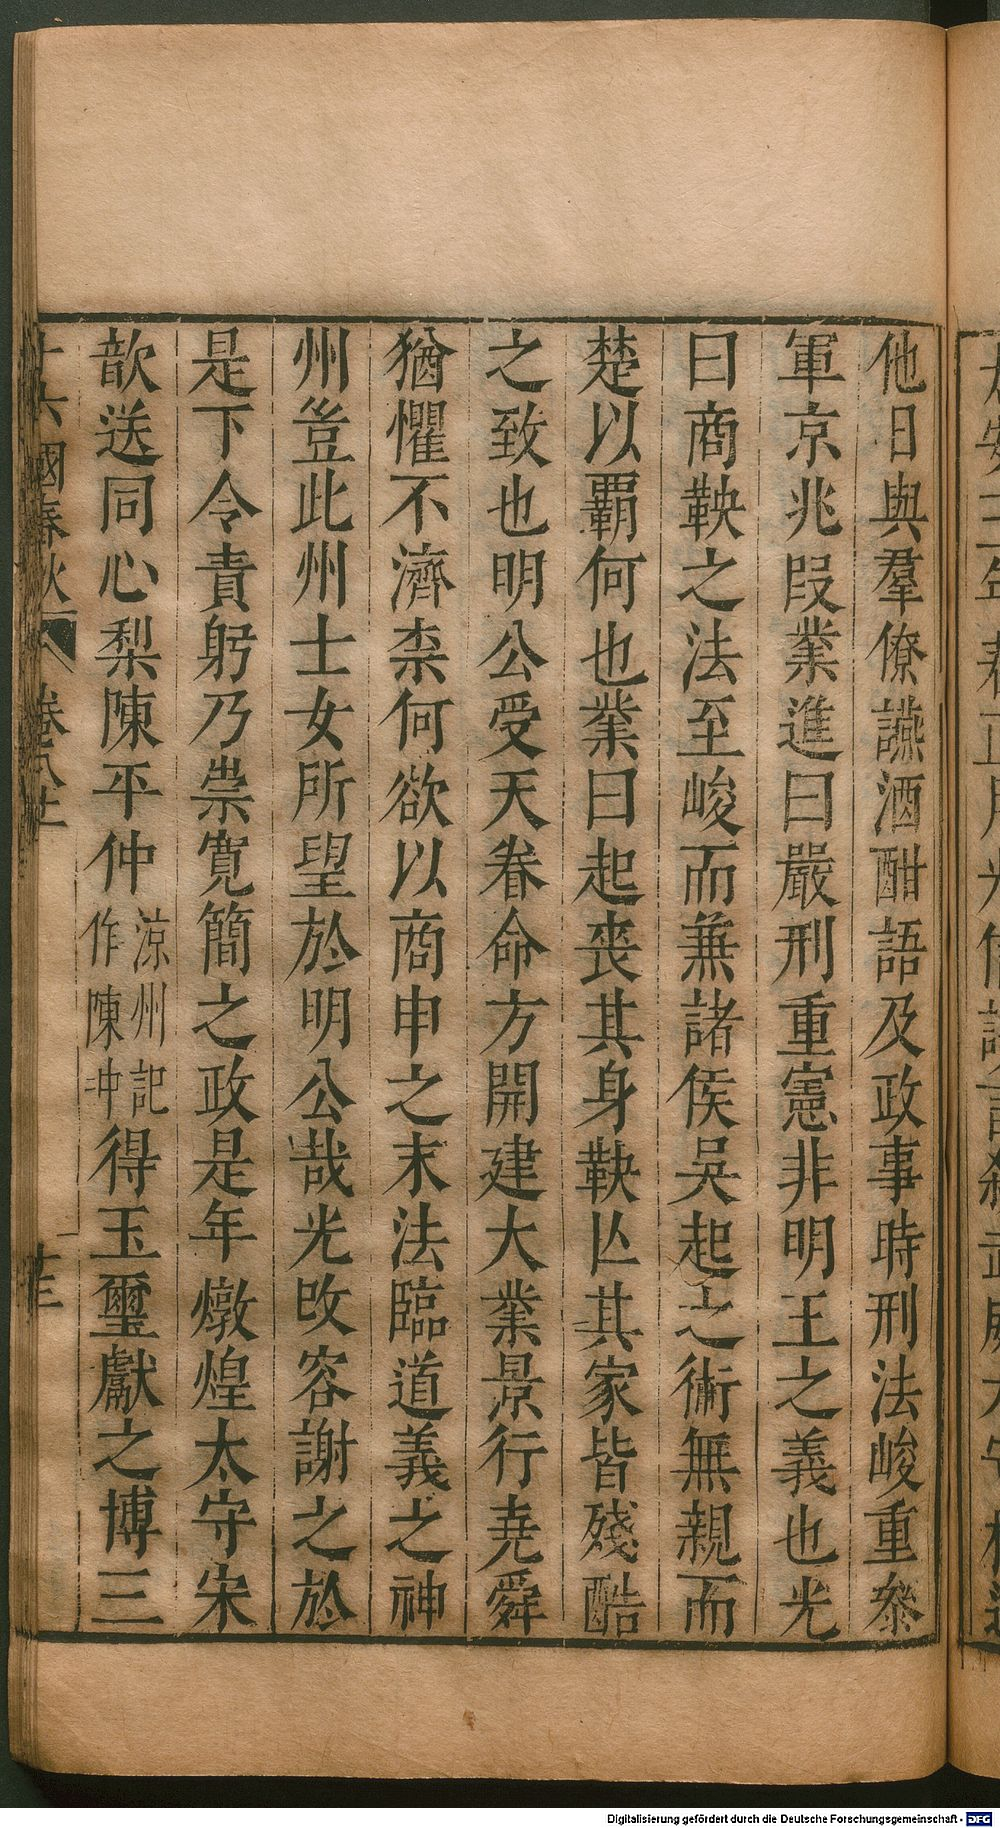 他日與羣僚讌酒酣語及政事時刑法峻重叅
軍京兆段業進曰嚴刑重憲非明王之義也光
曰商鞅之法至峻而兼諸侯吳起之術無親而
楚以霸何也業曰起喪其身鞅亾其家皆殘酷
之致也明公受天眷命方開建大業景行堯舜
猶懼不濟柰何欲以商申之末法臨道義之神
州豈此州士女所望於明公哉光改容謝之於
是下令責躬乃崇寬簡之政是年燉煌太守宋
歆送同心梨陳平仲涼州記作陳冲得玉璽獻之博三
十六國春秋 卷八十
Digitalisierung gefördert durch die Deutsche Forschungsgemeinschaft - DFG